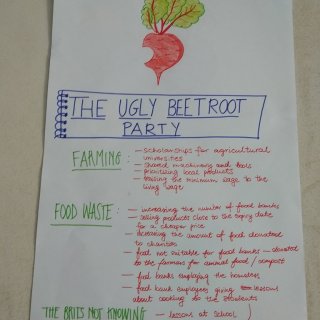 THE UGLY BEETROOT
PARTY
FARMING: - scholarships for agricultural
universities
- shared machinery and tools
- prioritising local products
- raising the minimum wage to the
living wage
FOOD WASTE: - increasing the number of food banks
- selling products close to the expiry date
for a cheaper price
- increasing the amount of food donated
to charities
- food not suitable for food banks - donated
to the farmers for animal food / compost
- food banks employing the homeless
- food bank employees giving lessons
about cooking to the students
THE BRITS NOT KNOWING - lessons at school